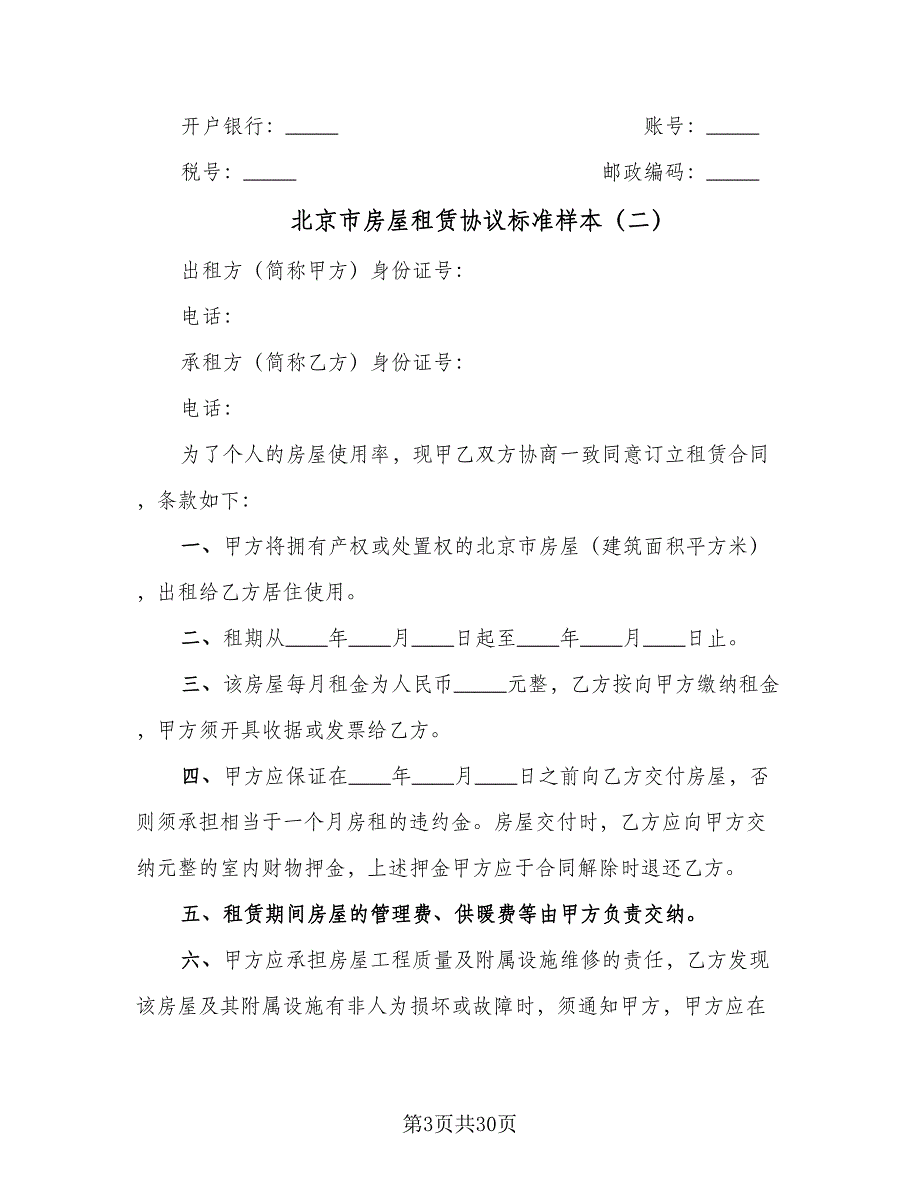 开户银行：_____ 账号：_____
税号：_____ 邮政编码：_____
北京市房屋租赁协议标准样本（二）
出租方（简称甲方）身份证号：
电话：
承租方（简称乙方）身份证号：
电话：
为了个人的房屋使用率，现甲乙双方协商一致同意订立租赁合同
，条款如下：
一、甲方将拥有产权或处置权的北京市房屋（建筑面积平方米）
，出租给乙方居住使用。
二、租期从____年____月____日起至____年____月____日止。
三、该房屋每月租金为人民币_____元整，乙方按向甲方缴纳租金
，甲方须开具收据或发票给乙方。
四、甲方应保证在____年____月____日之前向乙方交付房屋，否
则须承担相当于一个月房租的违约金。房屋交付时，乙方应向甲方交
纳元整的室内财物押金，上述押金甲方应于合同解除时退还乙方。
五、租赁期间房屋的管理费、供暖费等由甲方负责交纳。
六、甲方应承担房屋工程质量及附属设施维修的责任，乙方发现
该房屋及其附属设施有非人为损坏或故障时，须通知甲方，甲方应在
第3页共30页